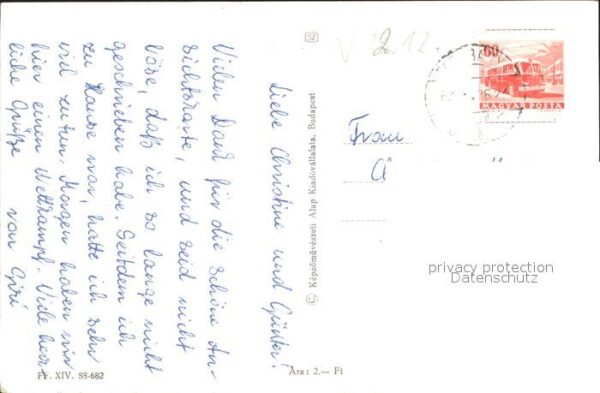 Liebe Christine und Günter!
Vielen Dank für die schöne An-
sichtskarte, und seid nicht
böse, daß ich so lange nicht
geschrieben habe. Seitdem ich
zu Hause war, hatte ich sehr
viel zu tun. Morgen haben wir
hier einen Wettkampf. Viele herz-
liche Grüße
von
FF. XIV. 88-682
© Képzőművészeti Alap Kiadóvállalata, Budapest
Ára: 2,— Ft
60
MAGYAR POSTA
Frau
privacy protection
Datenschutz